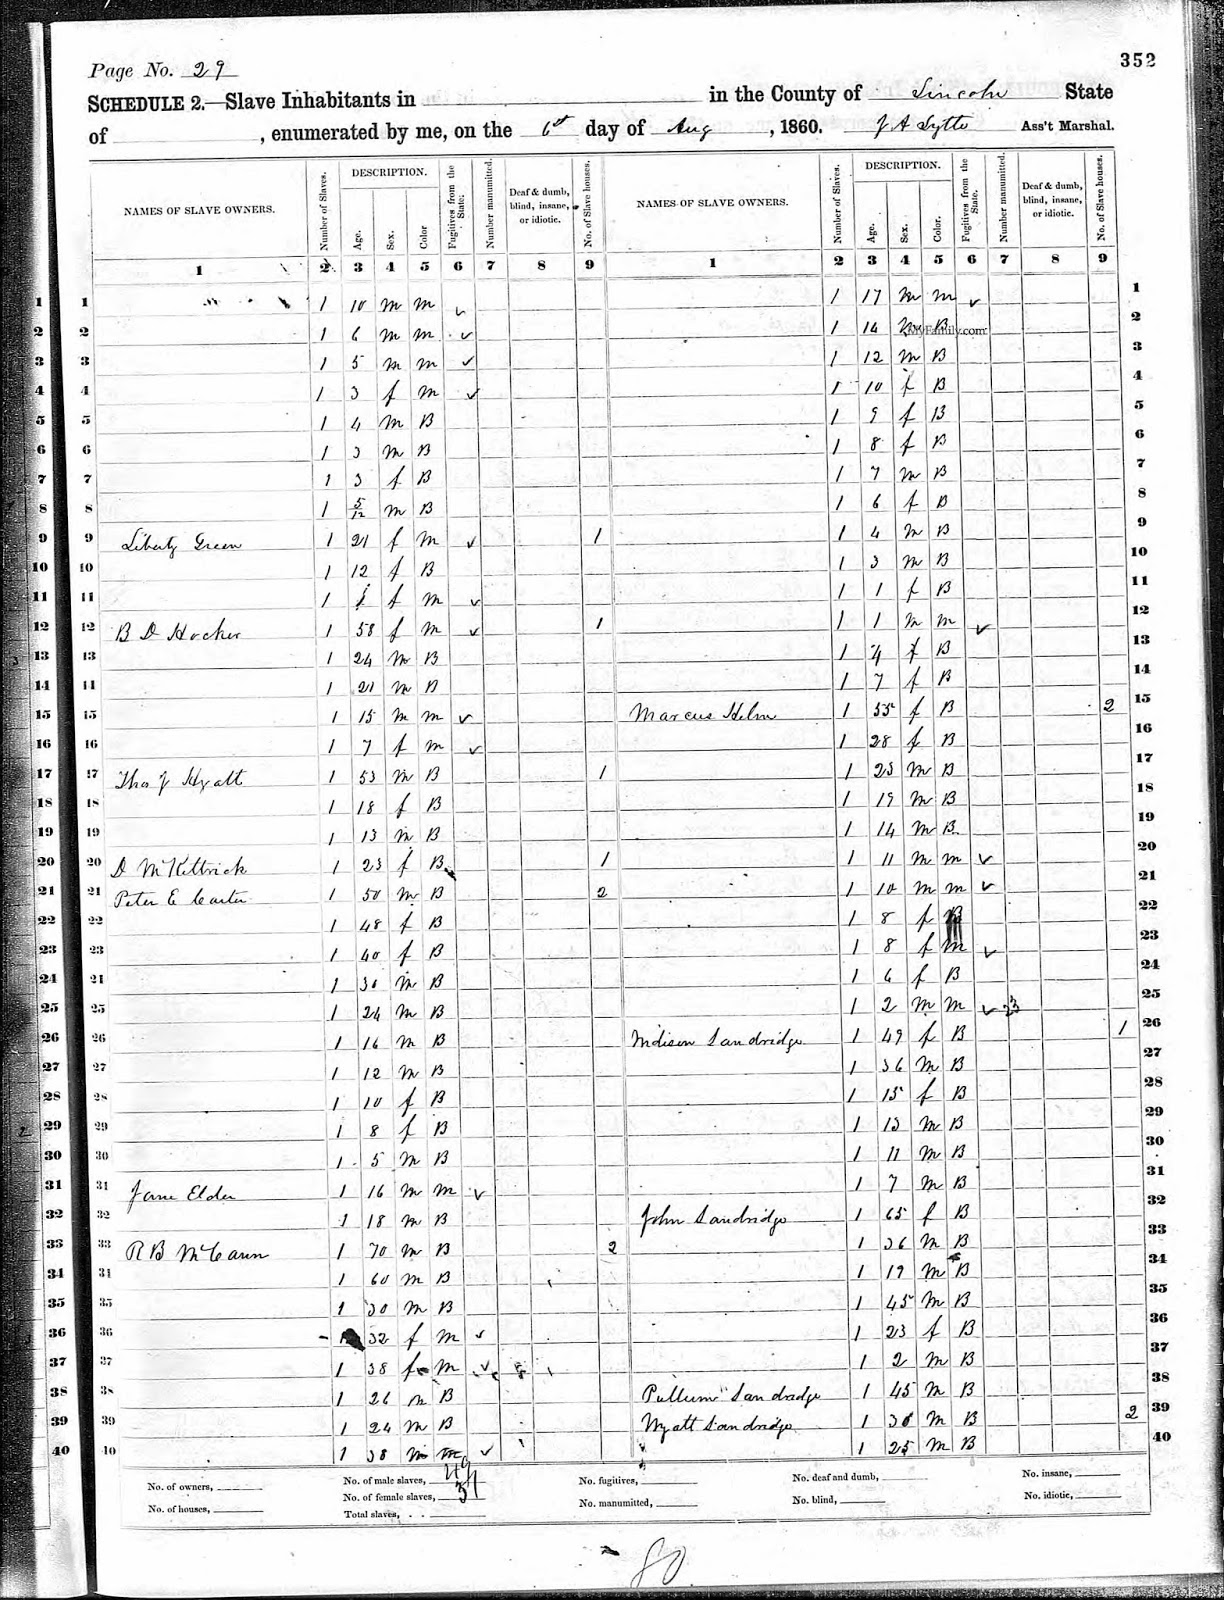 352
Page No. 29
SCHEDULE 2.—Slave Inhabitants in in the County of Lincoln State
of , enumerated by me, on the 6th day of Aug , 1860. J A Lytle Ass't Marshal.
NAMES OF SLAVE OWNERS. Number of Slaves. DESCRIPTION. Age. Sex. Color Fugitives from the State. Number manumitted. Deaf & dumb, blind, insane, or idiotic. No. of Slave houses. NAMES OF SLAVE OWNERS. Number of Slaves. DESCRIPTION. Age. Sex. Color. Fugitives from the State. Number manumitted. Deaf & dumb, blind, insane, or idiotic. No. of Slave houses.
1 2 3 4 5 6 7 8 9 1 2 3 4 5 6 7 8 9
1 1 1 10 m m 1 17 m m 1
2 2 1 6 m m 1 14 m B 2
MyFamily.com
3 3 1 5 m m 1 12 m B 3
4 4 1 3 f m 1 10 f B 4
5 5 1 4 m B 1 9 f B 5
6 6 1 3 m B 1 8 f B 6
7 7 1 3 f B 1 7 m B 7
8 8 1 5/12 m B 1 6 f B 8
9 9 Liberty Green 1 21 f m 1 1 4 m B 9
10 10 1 12 f B 1 3 m B 10
11 11 1 f m 1 1 f B 11
12 12 B D Hocker 1 58 f m 1 1 1 m m 12
13 13 1 24 m B 1 4 f B 13
14 14 1 21 m B 1 7 f B 14
15 15 1 15 m m Marcus Helm 1 55 f B 2 15
16 16 1 7 f m 1 28 f B 16
17 17 Thos J Hyatt 1 53 m B 1 1 23 m B 17
18 18 1 18 f B 1 19 m B 18
19 19 1 13 m B 1 14 m B 19
20 20 D McKittrick 1 23 f B 1 1 11 m m 20
21 21 Peter E Carter 1 50 m B 2 1 10 m m 21
22 22 1 48 f B 1 8 f B 22
23 23 1 40 f B 1 8 f m 23
24 24 1 m B 1 6 f B 24
25 25 1 24 m B 1 2 m m 25
26 26 1 16 m B Mdison Sandridge 1 49 f B 1 26
27 27 1 12 m B 1 36 m B 27
28 28 1 10 f B 1 15 f B 28
29 29 1 8 f B 1 13 m B 29
30 30 1 5 m B 1 11 m B 30
31 31 Jane Elder 1 16 m m 1 7 m B 31
32 32 1 18 m B John Sandridge 1 65 f B 32
33 33 R B McCann 1 70 m B 2 1 36 m B 33
34 34 1 60 m B 1 19 m B 34
35 35 1 30 m B 1 45 m B 35
36 36 32 f m 1 23 f B 36
37 37 1 38 f m 1 2 m B 37
38 38 1 26 m B Pullum Sandridge 1 45 m B 38
39 39 1 24 m B Wyatt Sandridge 1 30 m B 2 39
40 40 1 38 m m 1 25 m B 40
No. of owners, No. of male slaves, 49 No. fugitives, No. deaf and dumb, No. insane,
No. of houses, No. of female slaves, 31 No. manumitted, No. blind, No. idiotic,
Total slaves,
80